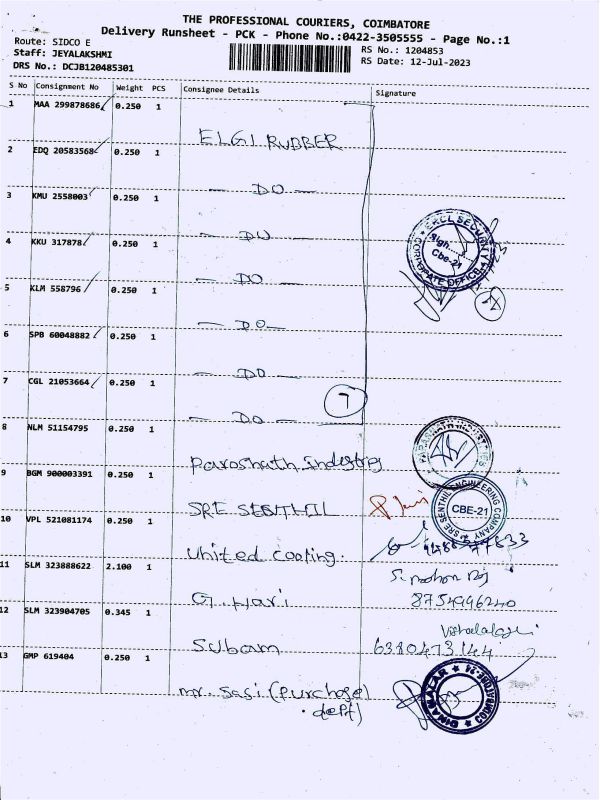 THE PROFESSIONAL COURIERS, COIMBATORE
Delivery Runsheet - PCK - Phone No.:0422-3505555 - Page No.:1
Route: SIDCO E
Staff: JEYALAKSHMI
DRS No.: DCJB120485301
RS No.: 1204853
RS Date: 12-Jul-2023
S No Consignment No Weight PCS Consignee Details Signature
1 MAA 299878686 0.250 1 ELGI RUBBER
2 EDQ 20583568 0.250 1 — DO —
3 KMU 2558003 0.250 1 — DO —
4 KKU 317878 0.250 1 — DO —
5 KLM 558796 0.250 1 — DO —
6 SPB 60048882 0.250 1 — DO —
7 CGL 21053664 0.250 1 — DO —
7
ERCL SECURITY
Sigh
Cbe-21
CORPORATE OFFICE
8 NLM 51154795 0.250 1 Paroshath Industries
9 BGM 900003391 0.250 1 SRE SENTHIL
SRE SENTHIL ENGINEERING COMPANY
CBE-21
10 VPL 521081174 0.250 1 United Coating.
11 SLM 323888622 2.100 1 G. Hari
8754996240
12 SLM 323904705 0.345 1 Subam
6380473144
13 GMP 619404 0.250 1 mr. Sasi (Purchase dept)
DINAMALAR